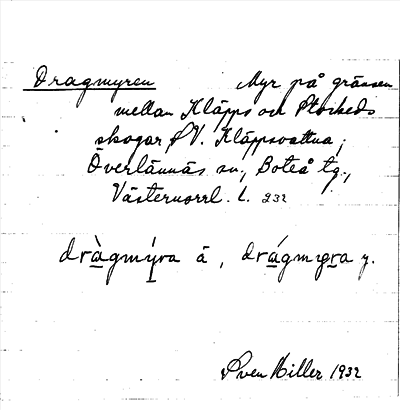 Dragmyren Myr på gränsen
mellan Kläpps och Storheds
skogar SV. Kläppsvattna,
Överlännäs sn, Boteå tg.,
Västernorrl. l. 232
dràgmýra ä, drágmyra y.
Sven Hiller 1932